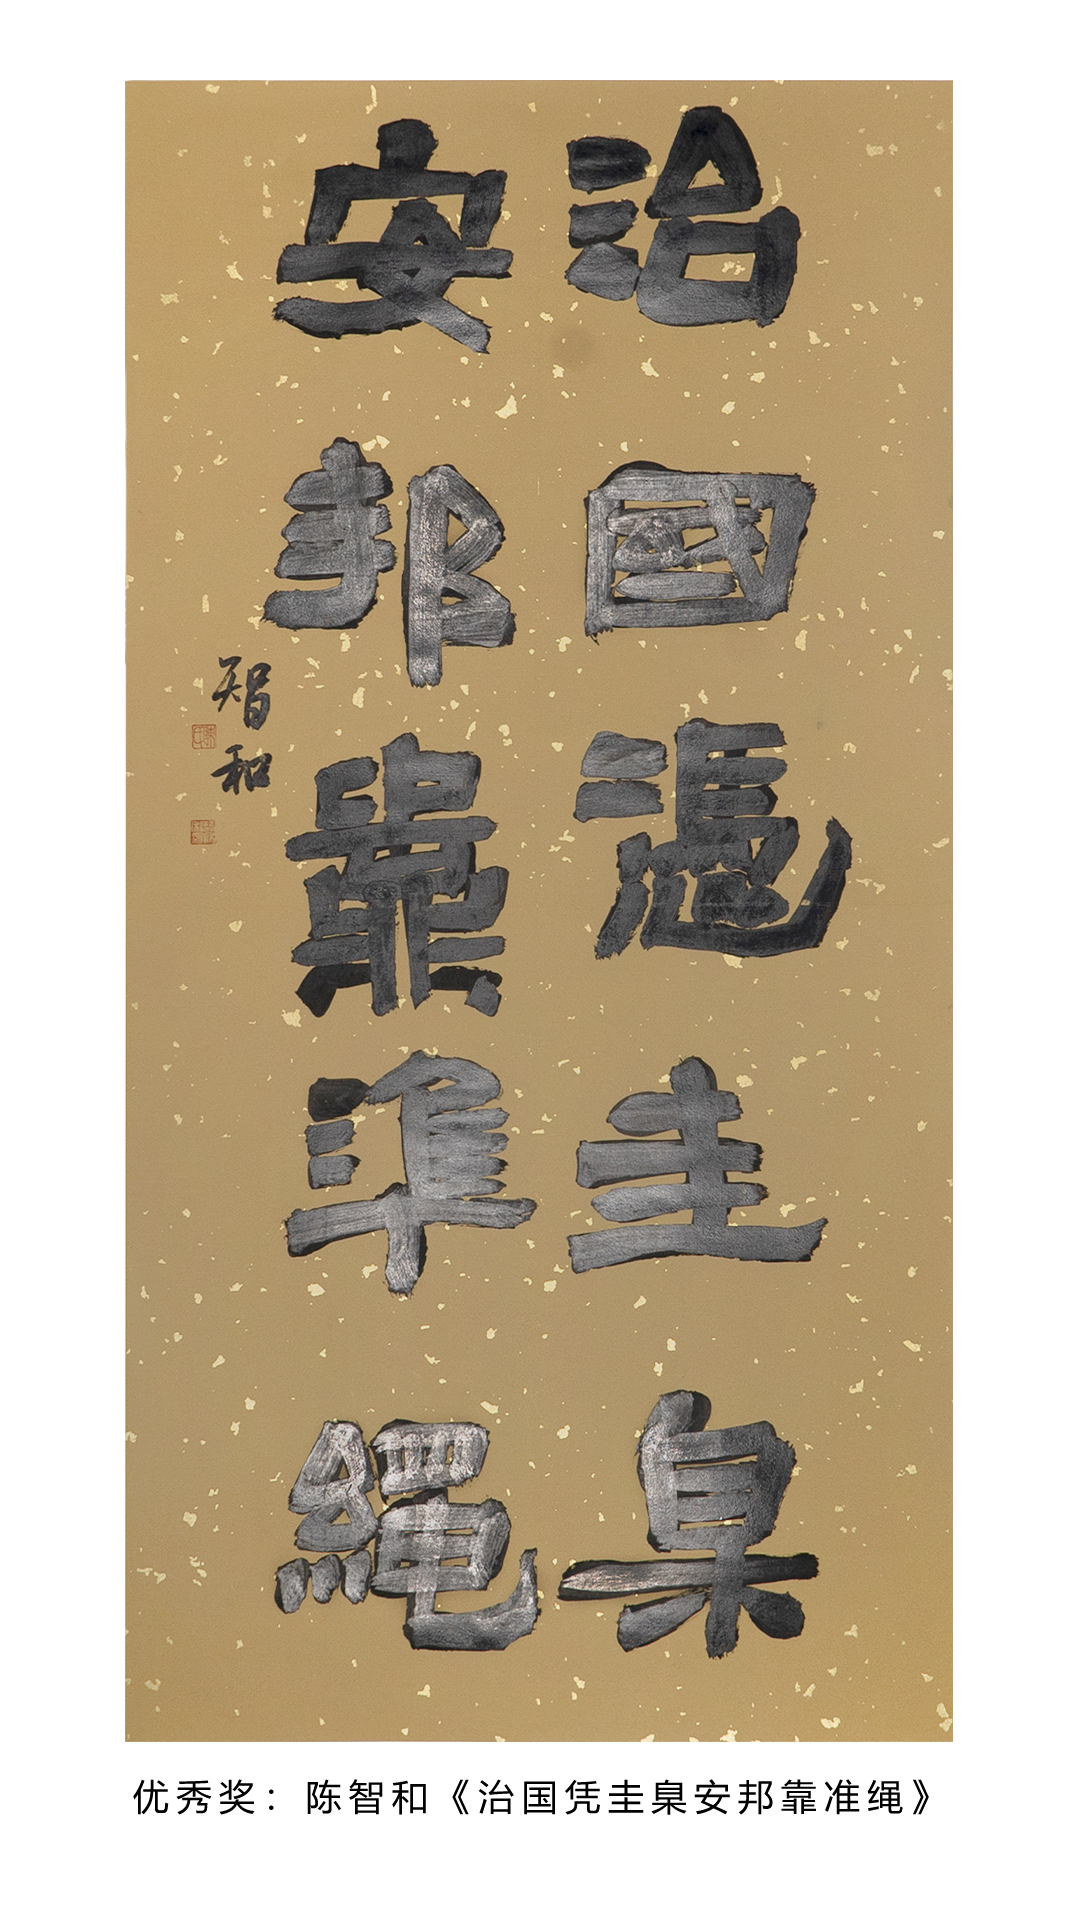 治國憑圭臬
安邦靠準繩
智和
优秀奖：陈智和《治国凭圭臬安邦靠准绳》